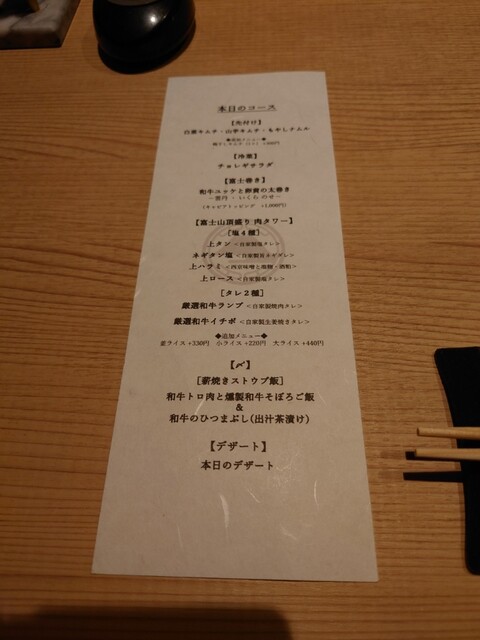 本日のコース
【先付け】
白菜キムチ・山芋キムチ・もやしナムル
◆追加メニュー◆
【冷菜】
チョレギサラダ
【富士巻き】
和牛ユッケと卵黄の太巻き
～雲丹・いくら のせ～
(キャビアトッピング +1,000円)
【富士山頂盛り 肉タワー】
[塩４種]
上タン <自家製塩タレ>
ネギタン塩 <自家製旨ネギダレ>
上ハラミ <西京味噌と塩麹・酒粕>
上ロース <自家製塩タレ>
[タレ２種]
厳選和牛ランプ <自家製焼肉タレ>
厳選和牛イチボ <自家製生姜焼きタレ>
◆追加メニュー◆
並ライス +330円 小ライス +220円 大ライス +440円
【〆】
[薪焼きストウブ飯]
和牛トロ肉と燻製和牛そぼろご飯
&
和牛のひつまぶし(出汁茶漬け)
【デザート】
本日のデザート